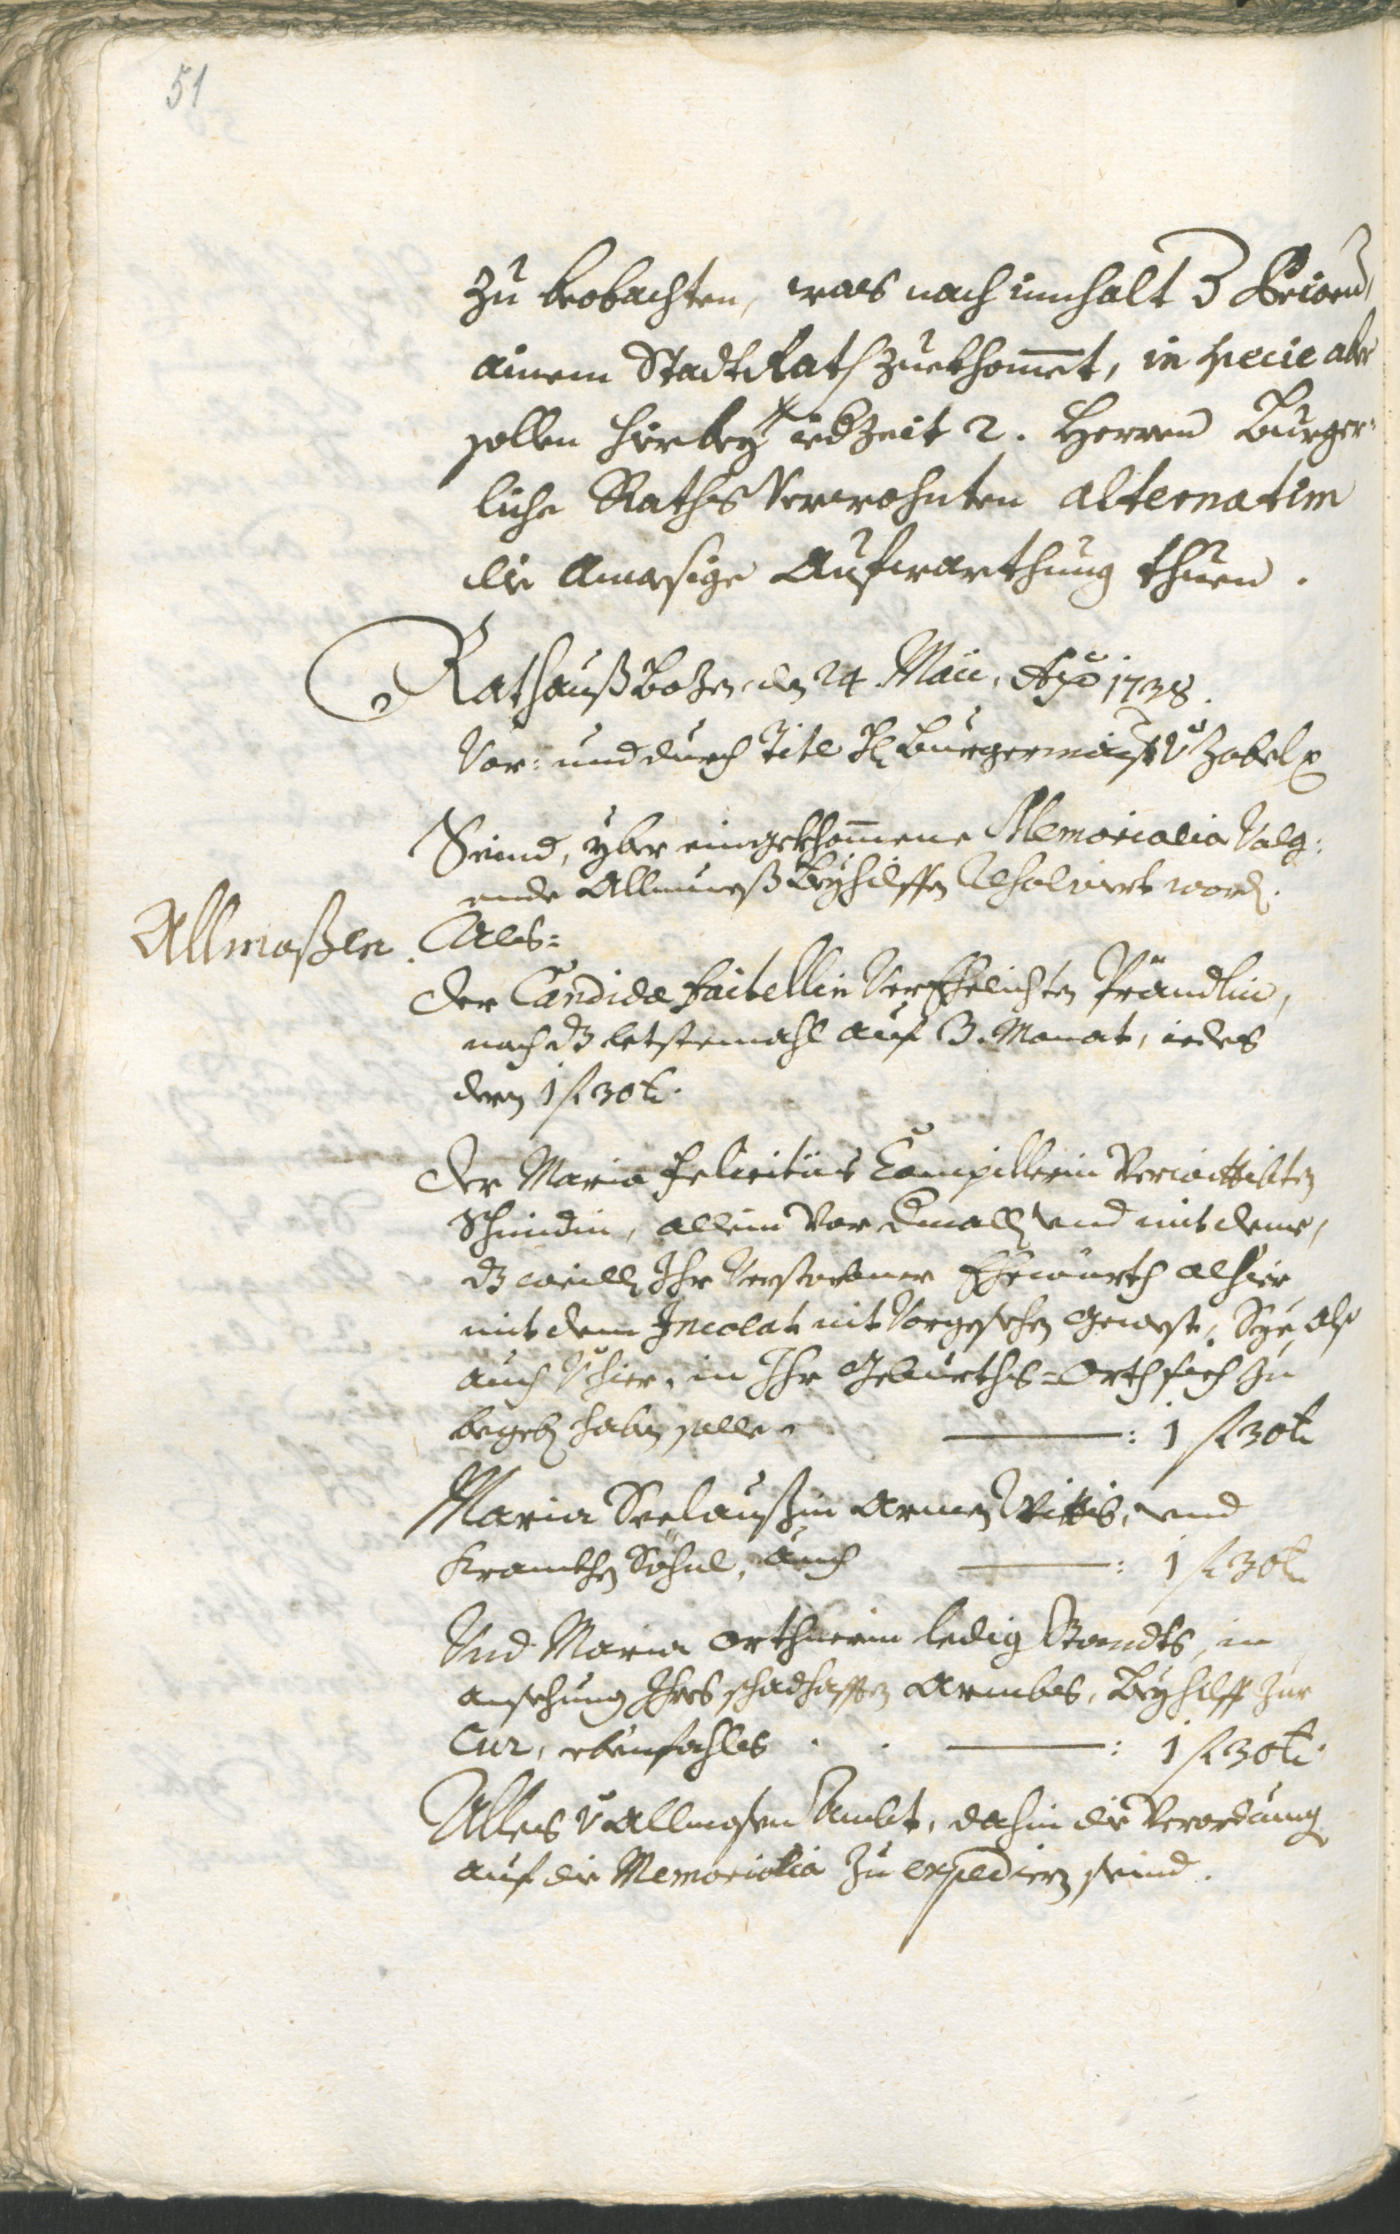 51
zu beobachten, waß nach innhalt
ainem Stadt Rath zuekhommet, in specie aber
sollen hierbey iedzeit 2. Herren Burger-
liche Raths Verwohnten alternatim
die Aufwarthung thuen.
Rathauß Bozen den 24 Maii, Aº 1738.
Vor: und durch Titl H Burgermaister Zobel
Seind, yber eingekhommene Memorialia Volg:
ende Allmueß Beyhilffen resolviert word.
Allmoßen
Als=
Der Candida Faitellin Verehelichten Prändlin,
noch dz letstemahl auf 3. Monat, iedes
dern 1 f 30 k.
Der Maria Felicitas Campillerin Verwittibten
Schmidin, allein vor dimall und mit deme,
dz weillen Ihr Verstorbener Ehewürth alhier
mit dem Incolat nit Vorgesehen gewest, Sye also
auch hier, in Ihr Geburths=Orth sich zu
begeben haben solle. : 1 f 30 k
Maria armen Wittib, und
krankhen Söhnl, auch : 1 f 30 k
Und Maria Orthnerin ledig Standts, in
ansehung Ihres schadhafften Armbes, Beyhilff zur
Cur, ebenfahls : 1 f 30 k.
Alles v Allmosen Ambt, dahin die Verordnung
auf die Memorialia zu expedieren seind.